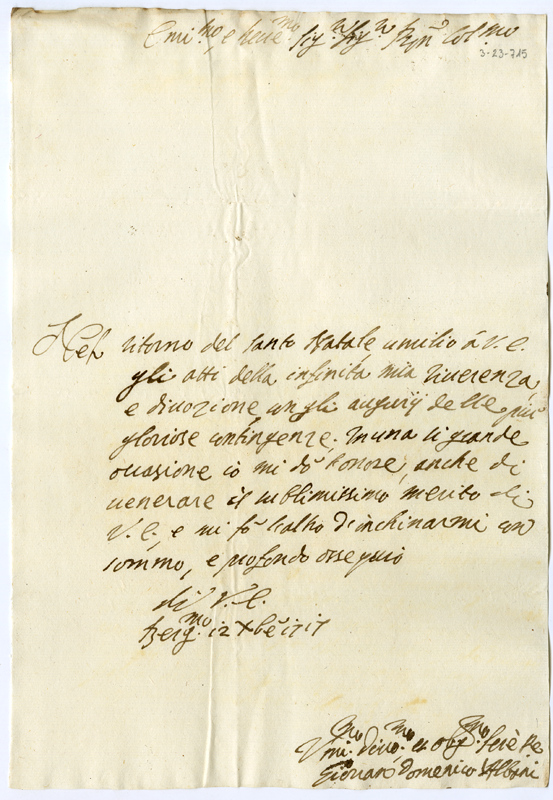 Emi.mo e Reue.mo Sig.r Sig.r Pr̃on Col.mo
3-23-715
Nel ritorno del santo Natale umilio á V. E.
gli atti della infinita mia riuerenza
e diuozione con gli augurij delle più
gloriose contingenze. In una si grande
occasione io mi dò l'honore anche di
uenerare il sublimissimo merito di
V. E., e mi fò l'alto d'inchinarmi con
sommo, e profondo ossequio
di V. E.
Berg.mo 12 Xbẽ 1717
Vmi.mo Diuo.mo et obb.mo Ser.e
Giouan Domenico Albani